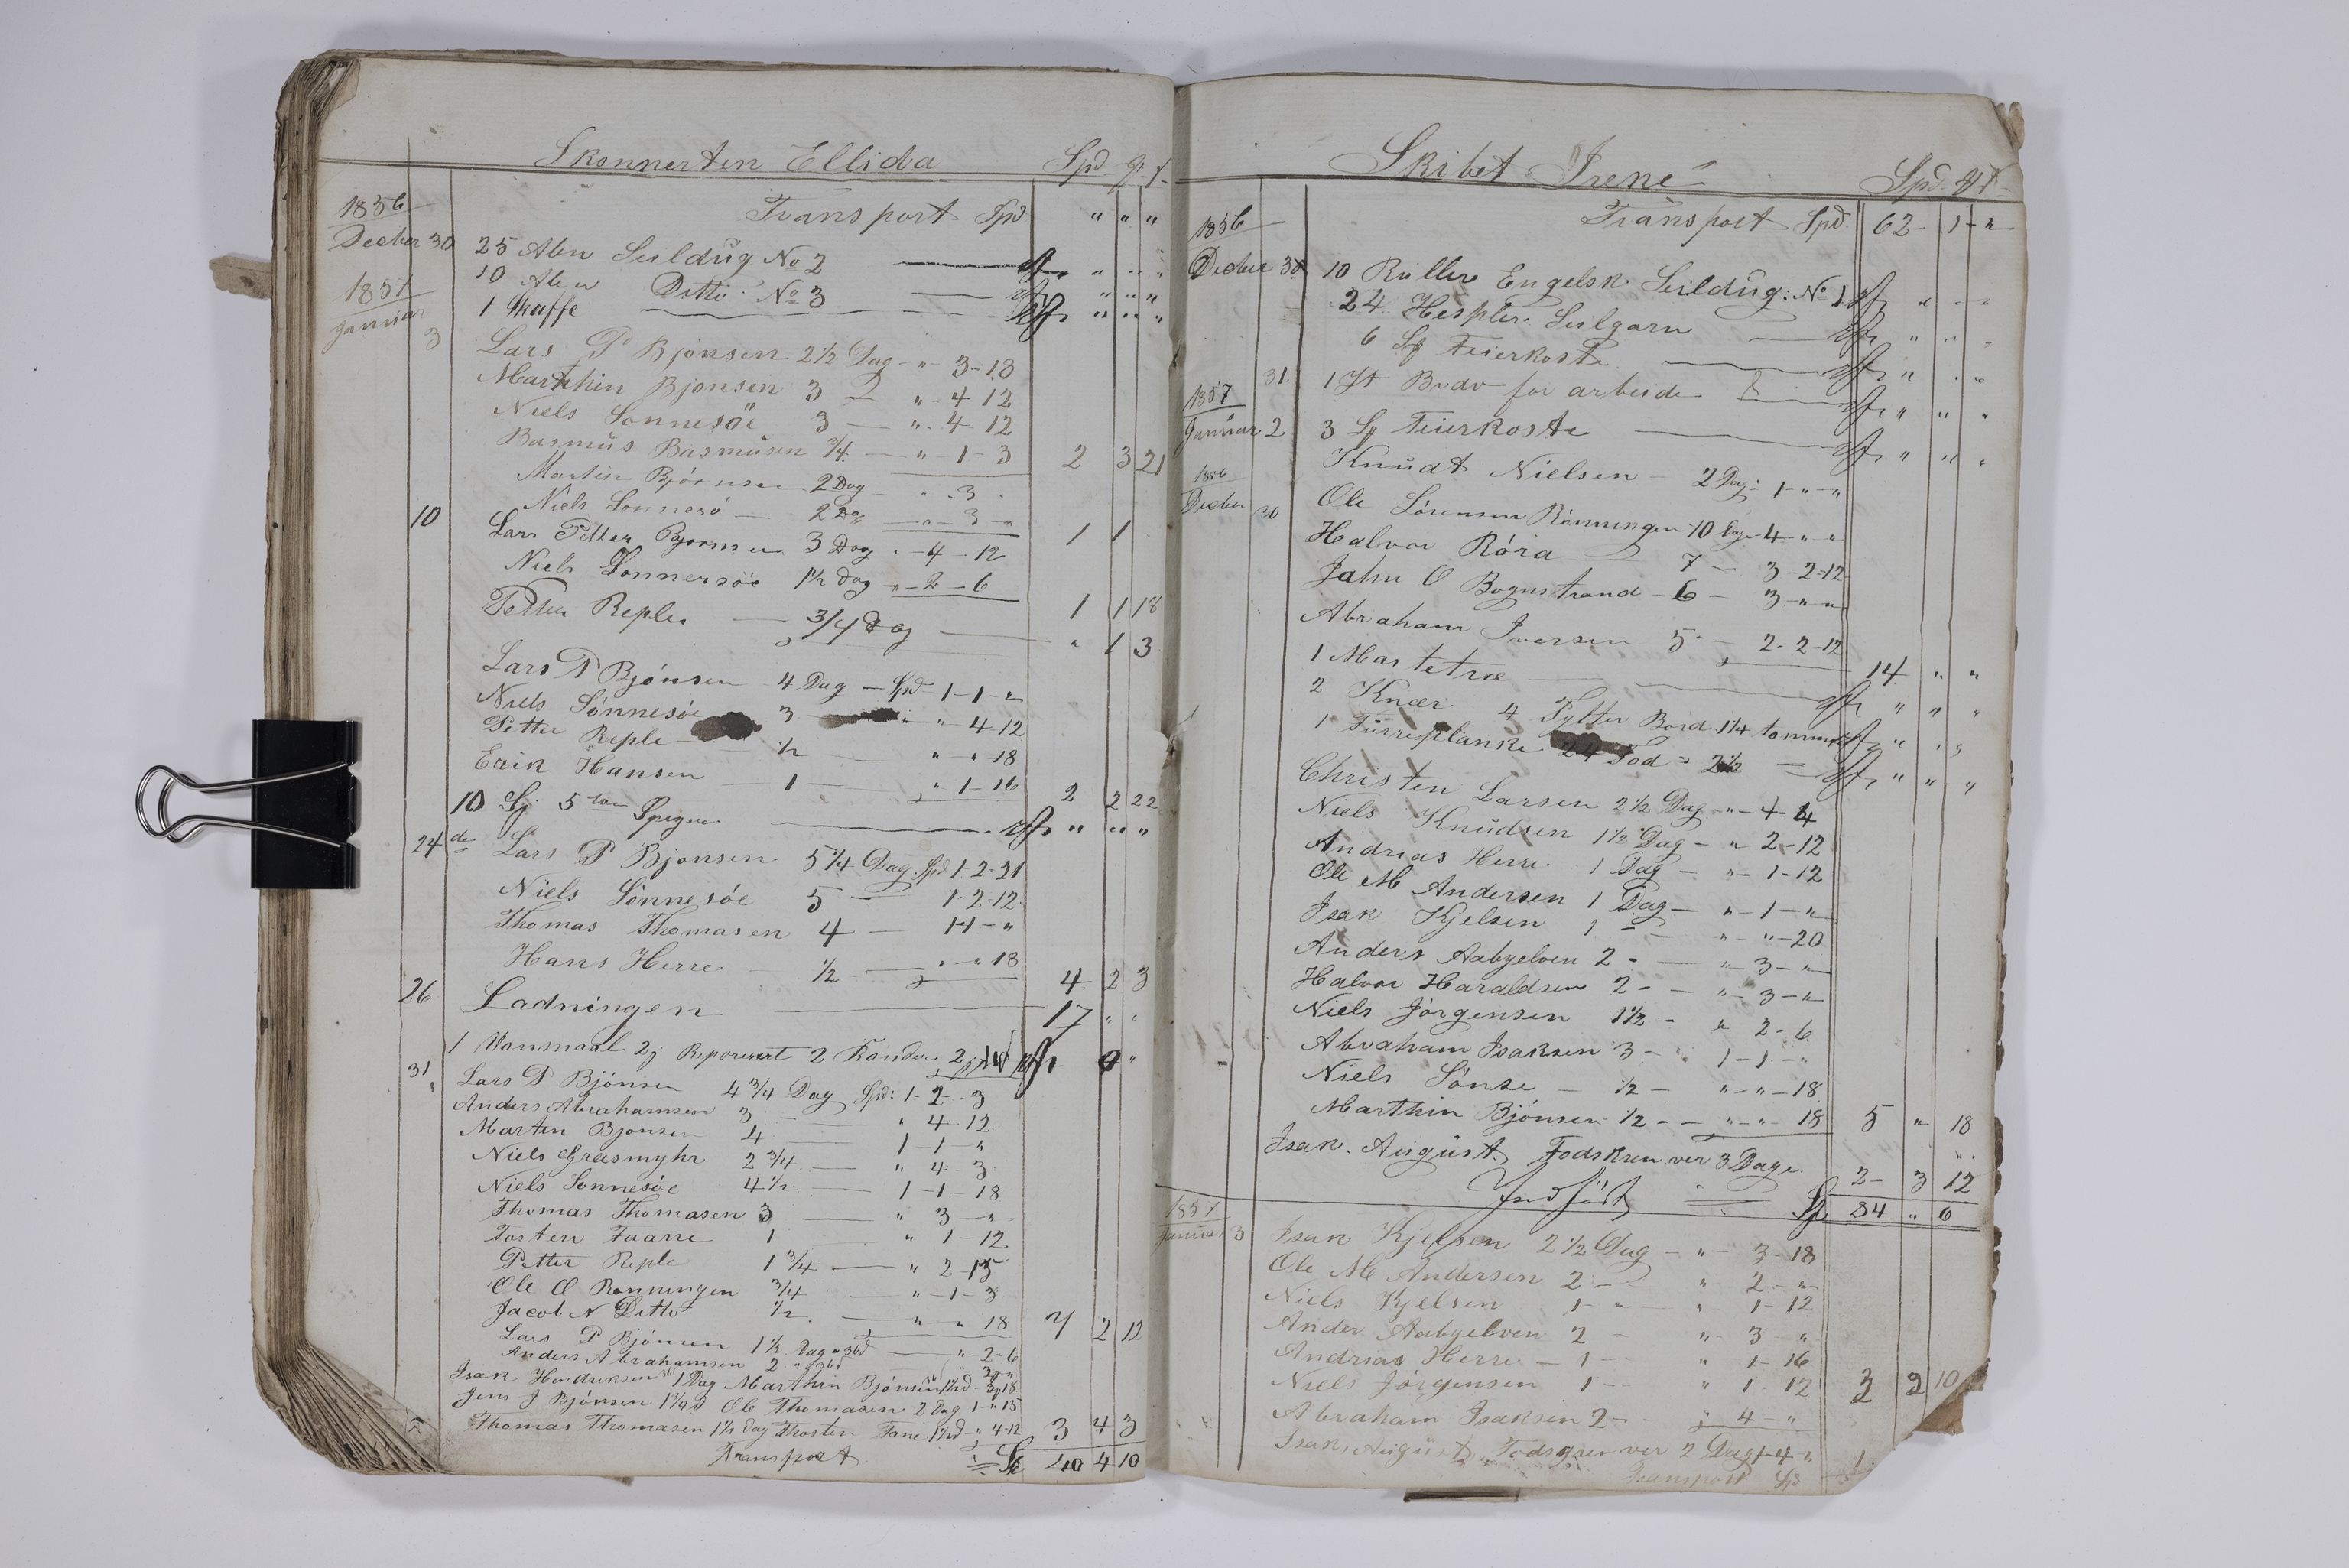 Skonnerten Ellida Spd
1856 Transport Spd " " "
Decber 30 25 Alen Seildug No 2 " " "
10 Alen Ditto No 3 " " "
1857 1 Skaffe " " "
Januar 3 Lars P Bjönsen 2 1/2 Dag - " 3-18
Marthin Bjonsen 3 — " - 4 12
Niels Sonnesöe 3 — " - 4-12
Rasmus Rasmusen 3/4 — " 1-3 2 3 21
Martin Björnsen 2 Dag - " 3 -
Niels Sonnesö — 2 Dag — " 3 - " 1 1
10 Lars Petter Bjornsen 3 Dag - 4-12
Niels Sonnersöe 1 1/2 Dag - " 2-6 1 1 18
Petter Reple — 3/4 Dag — " 1 3
Lars P Bjönsen 4 Dag — Spd 1-1-"
Niels Sönnesöe 3 " 4-12
Petter Reple — 1/2 " " 18
Erik Hansen — 1 — " 1-16 2 2 22
10 5 Spiger " " "
24de Lars P Bjonsen 5 1/4 Dag Spd 1-2-21
Niels Sönnesöe 5 — 1-2-12
Thomas Thomasen 4 — 1-1-"
Hans Herre 1/2 — " - " 18 4 2 3
26 Ladningen — 17 " "
1 2 2
31 Lars P Bjönsen 4 3/4 Dag Spd: 1-2-3
Anders Abrahamsen 3 " 4-12
Marten Bjonsen 4 — 1-1-"
Niels Grasmyhr 2 3/4 — " 4-3
Niels Sonnesöe 4 1/2 — 1-1-18
Thomas Thomasen 3 — " 3-"
Tosten Faane 1 " 1-12
Petter Reple 1 3/4 — " 2-15
Ole O Ronningen 3/4 — " 1-3
Jacob N Ditto 1/2 — " " 18 7 2 12
Lars P Bjönsen 1 1/2 Dag — " 2-6
Anders Abrahamsen 2
Isak Hendriksen 1 Dag Marthin Bjönsen
Jens J Bjönsen Ole Thomasen 2 Dag 1-"15
Thomas Thomasen 1 1/2 Dag Thosten Fane " 4-12 3 4 3
Transport 40 4 10
Skibet Irene Spd
1856 Transport Spd 62-1-"
Decber 30 10 Ruller Engelsk Seildug: No 1 " " "
24 Hespler Seilgarn " " "
6 Feierkoste " " "
31. 1 for arbeide " " "
1857
Januar 2 3 Feierkoste " " "
Knudt Nielsen - 2 Dag: 1-"-"
1856
Decber 30 Ole Sörensen Rönningen 10 4-"-"
Halvor Röra — 7 — 3-2-12
Jahn O Rognstrand - 6 - 3-"-"
Abraham Iversen 5 - 2-2-12 14 " "
1 Mastetræ — " " "
2 Knær 4 Tylter Bord 1 1/4 tomme " " "
1 Fürreplanke 24 Fod 2 1/2 — " " "
Christen Larsen 2 1/2 Dag - " - 4-4
Niels Knudsen 1 1/2 Dag - " 2-12
Andrias Herre 1 Dag - " - 1-12
Ole M Andersen 1 Dag — " - 1-"
Isak Kjelsen 1 — " - " - 20
Anders Aabyelven 2 - — " 3-"
Halvor Haraldsen 2 - — " 3-"
Niels Jörgensen 1 1/2 - " 2-6
Abraham Isaksen 3 - 1-1-"
Niels Sönse — 1/2 — " - " - 18
Marthin Bjönsen 1/2 - - " - " 18 5 " 18
Isak August Fodskren ver 3 Dage 2-3 12
Indfört 84 " 6
1857
Januar 3 Isak Kjelsen 2 1/2 Dag - " - 3-18
Ole M Andersen 2 - " 2-"
Niels Kjelsen 1 - " 1-12
Ander Aabyelven 2 - " 3-"
Andrias Herre - 1 - " 1-16
Niels Jörgensen 1 - " 1-12 3 2 10
Abraham Isaksen 2 - " 4-"
Isak August ver 2 Dag 1-4-" 1
Transport